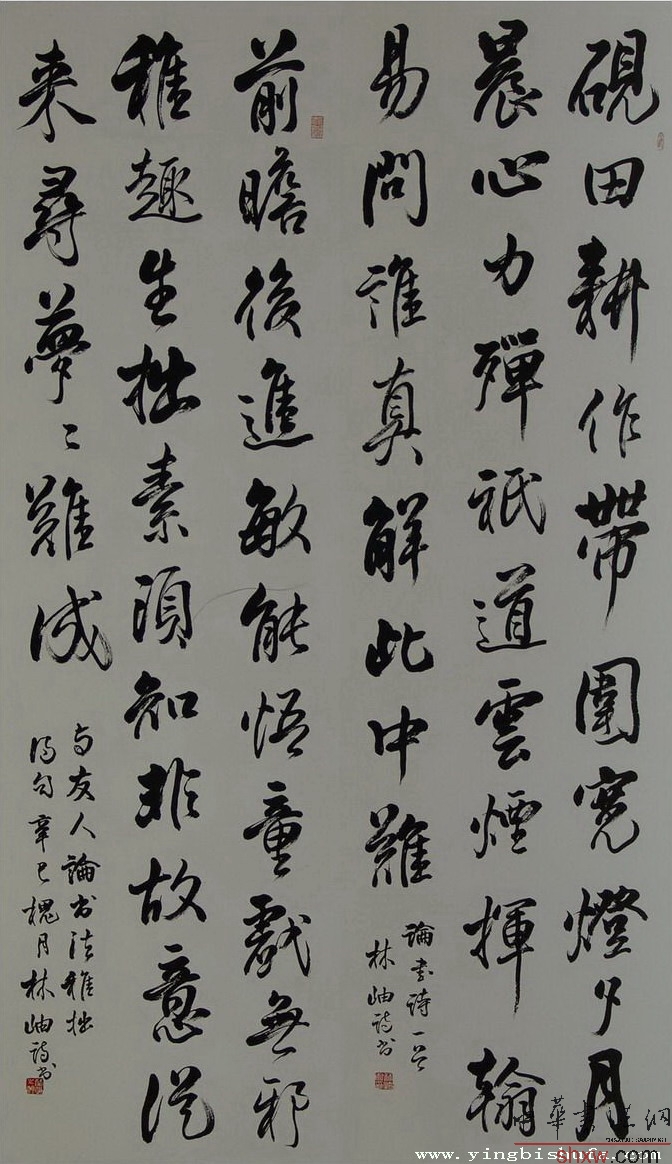 硯田耕作帶圍寬燈夕月
晨心力殫祇道雲煙揮翰
易問誰真解此中難
論書詩一首
林岫詩書
前瞻後進敏能悟童戲無邪
稚趣生拙素須知非故意從
来尋夢〻難成
与友人論書法稚拙
得句辛巳槐月林岫詩書
中華書法網
www.yingbishufa.com